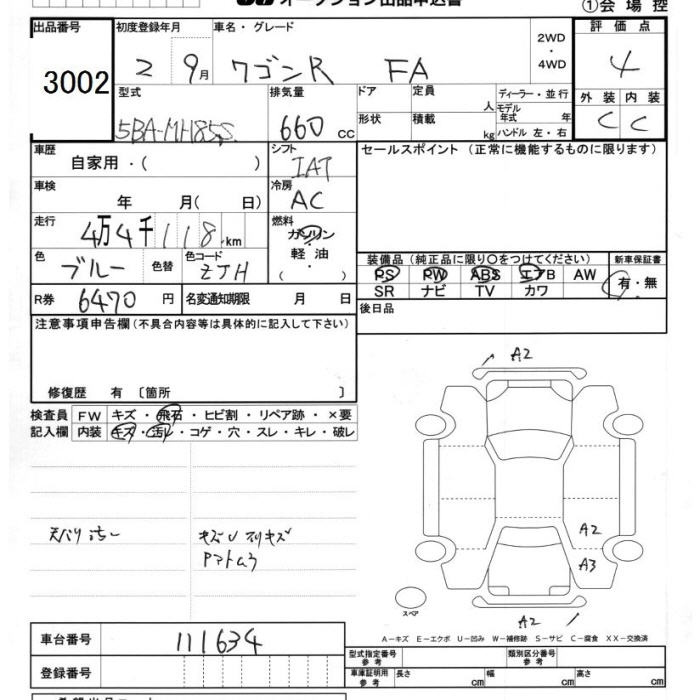 オークション出品申込書
①会場控
出品番号 初度登録年月 車名・グレード 2WD・4WD 評価点
3002 2 9月 ワゴンR FA 4
型式 排気量 ドア 定員 人 ディーラー・並行 外装 内装
5BA-MH85S 660 cc 形状 積載 kg モデル年式 年 ハンドル 左・右 C C
車歴 自家用・( ) シフト IAT セールスポイント(正常に機能するものに限ります)
車検 年 月( 日) 冷房 AC
走行 4万4千118km 燃料 ガソリン・軽油 ( )
色 ブルー 色替 色コード ZJH
装備品(純正品に限り○をつけてください) 新車保証書
PS PW ABS エアB AW 有・無
SR ナビ TV カワ
R券 6470円 名変通知期限 月 日 後日品
注意事項申告欄(不具合内容等は具体的に記入して下さい)
修復歴 有 〔箇所 〕
検査員 FW キズ・飛石・ヒビ割・リペア跡・×要
記入欄 内装 キズ・汚れ・コゲ・穴・スレ・キレ・破レ
A2
A2
A3
A2
スペア
A-キズ E-エクボ U-凹み W-補修跡 S-サビ C-腐食 XX-交換済
車台番号 111634
登録番号
型式指定番号 参考 類別区分番号 参考
車庫証明用 参考 長さ cm 幅 cm 高さ cm